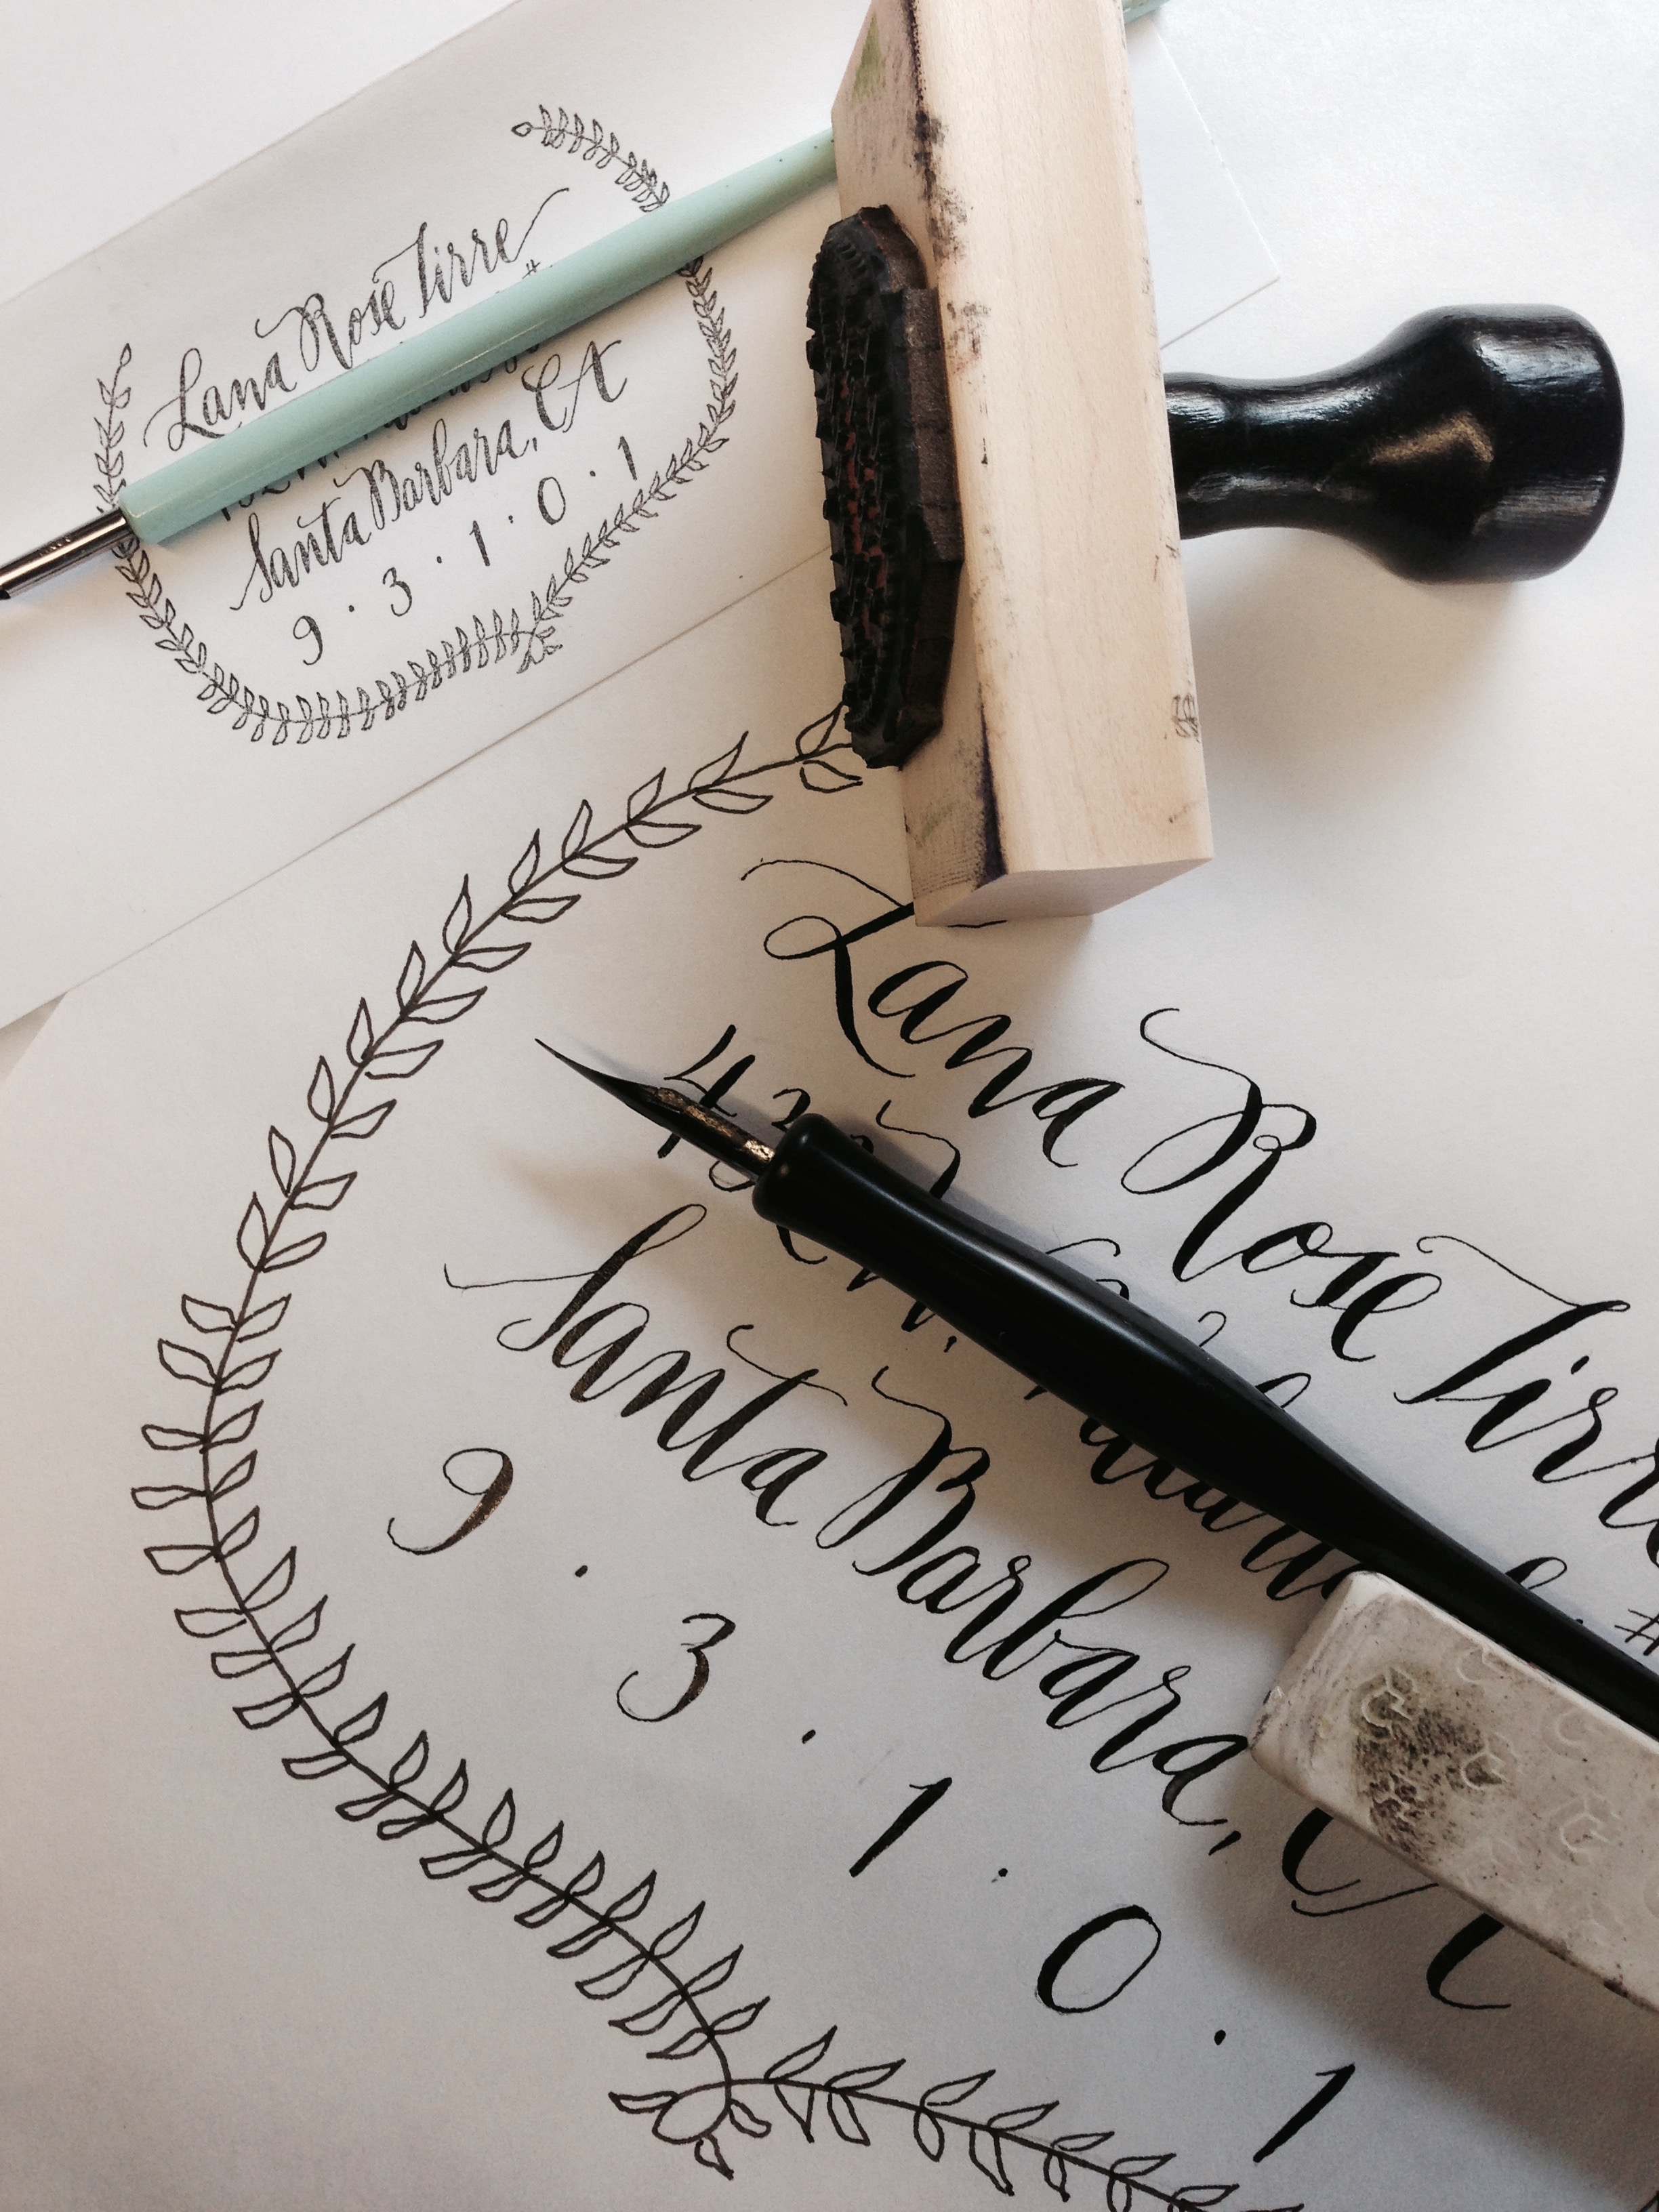 Lana Rose Tirre
#
Santa Barbara, CA
9 · 3 · 1 · 0 · 1
Lana Rose Tirre
432 N.
#
Santa Barbara, CA
9 · 3 · 1 · 0 · 1